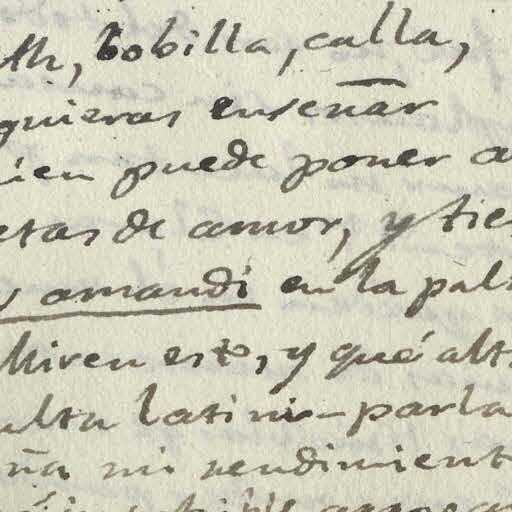 th, bobilla, calla,
quieras enseñar
ien puede poner a
etas de amor, y tie
s amandi en la pal
Miren esto, y qué alt
ulta latini-parla
ña mi rendimient